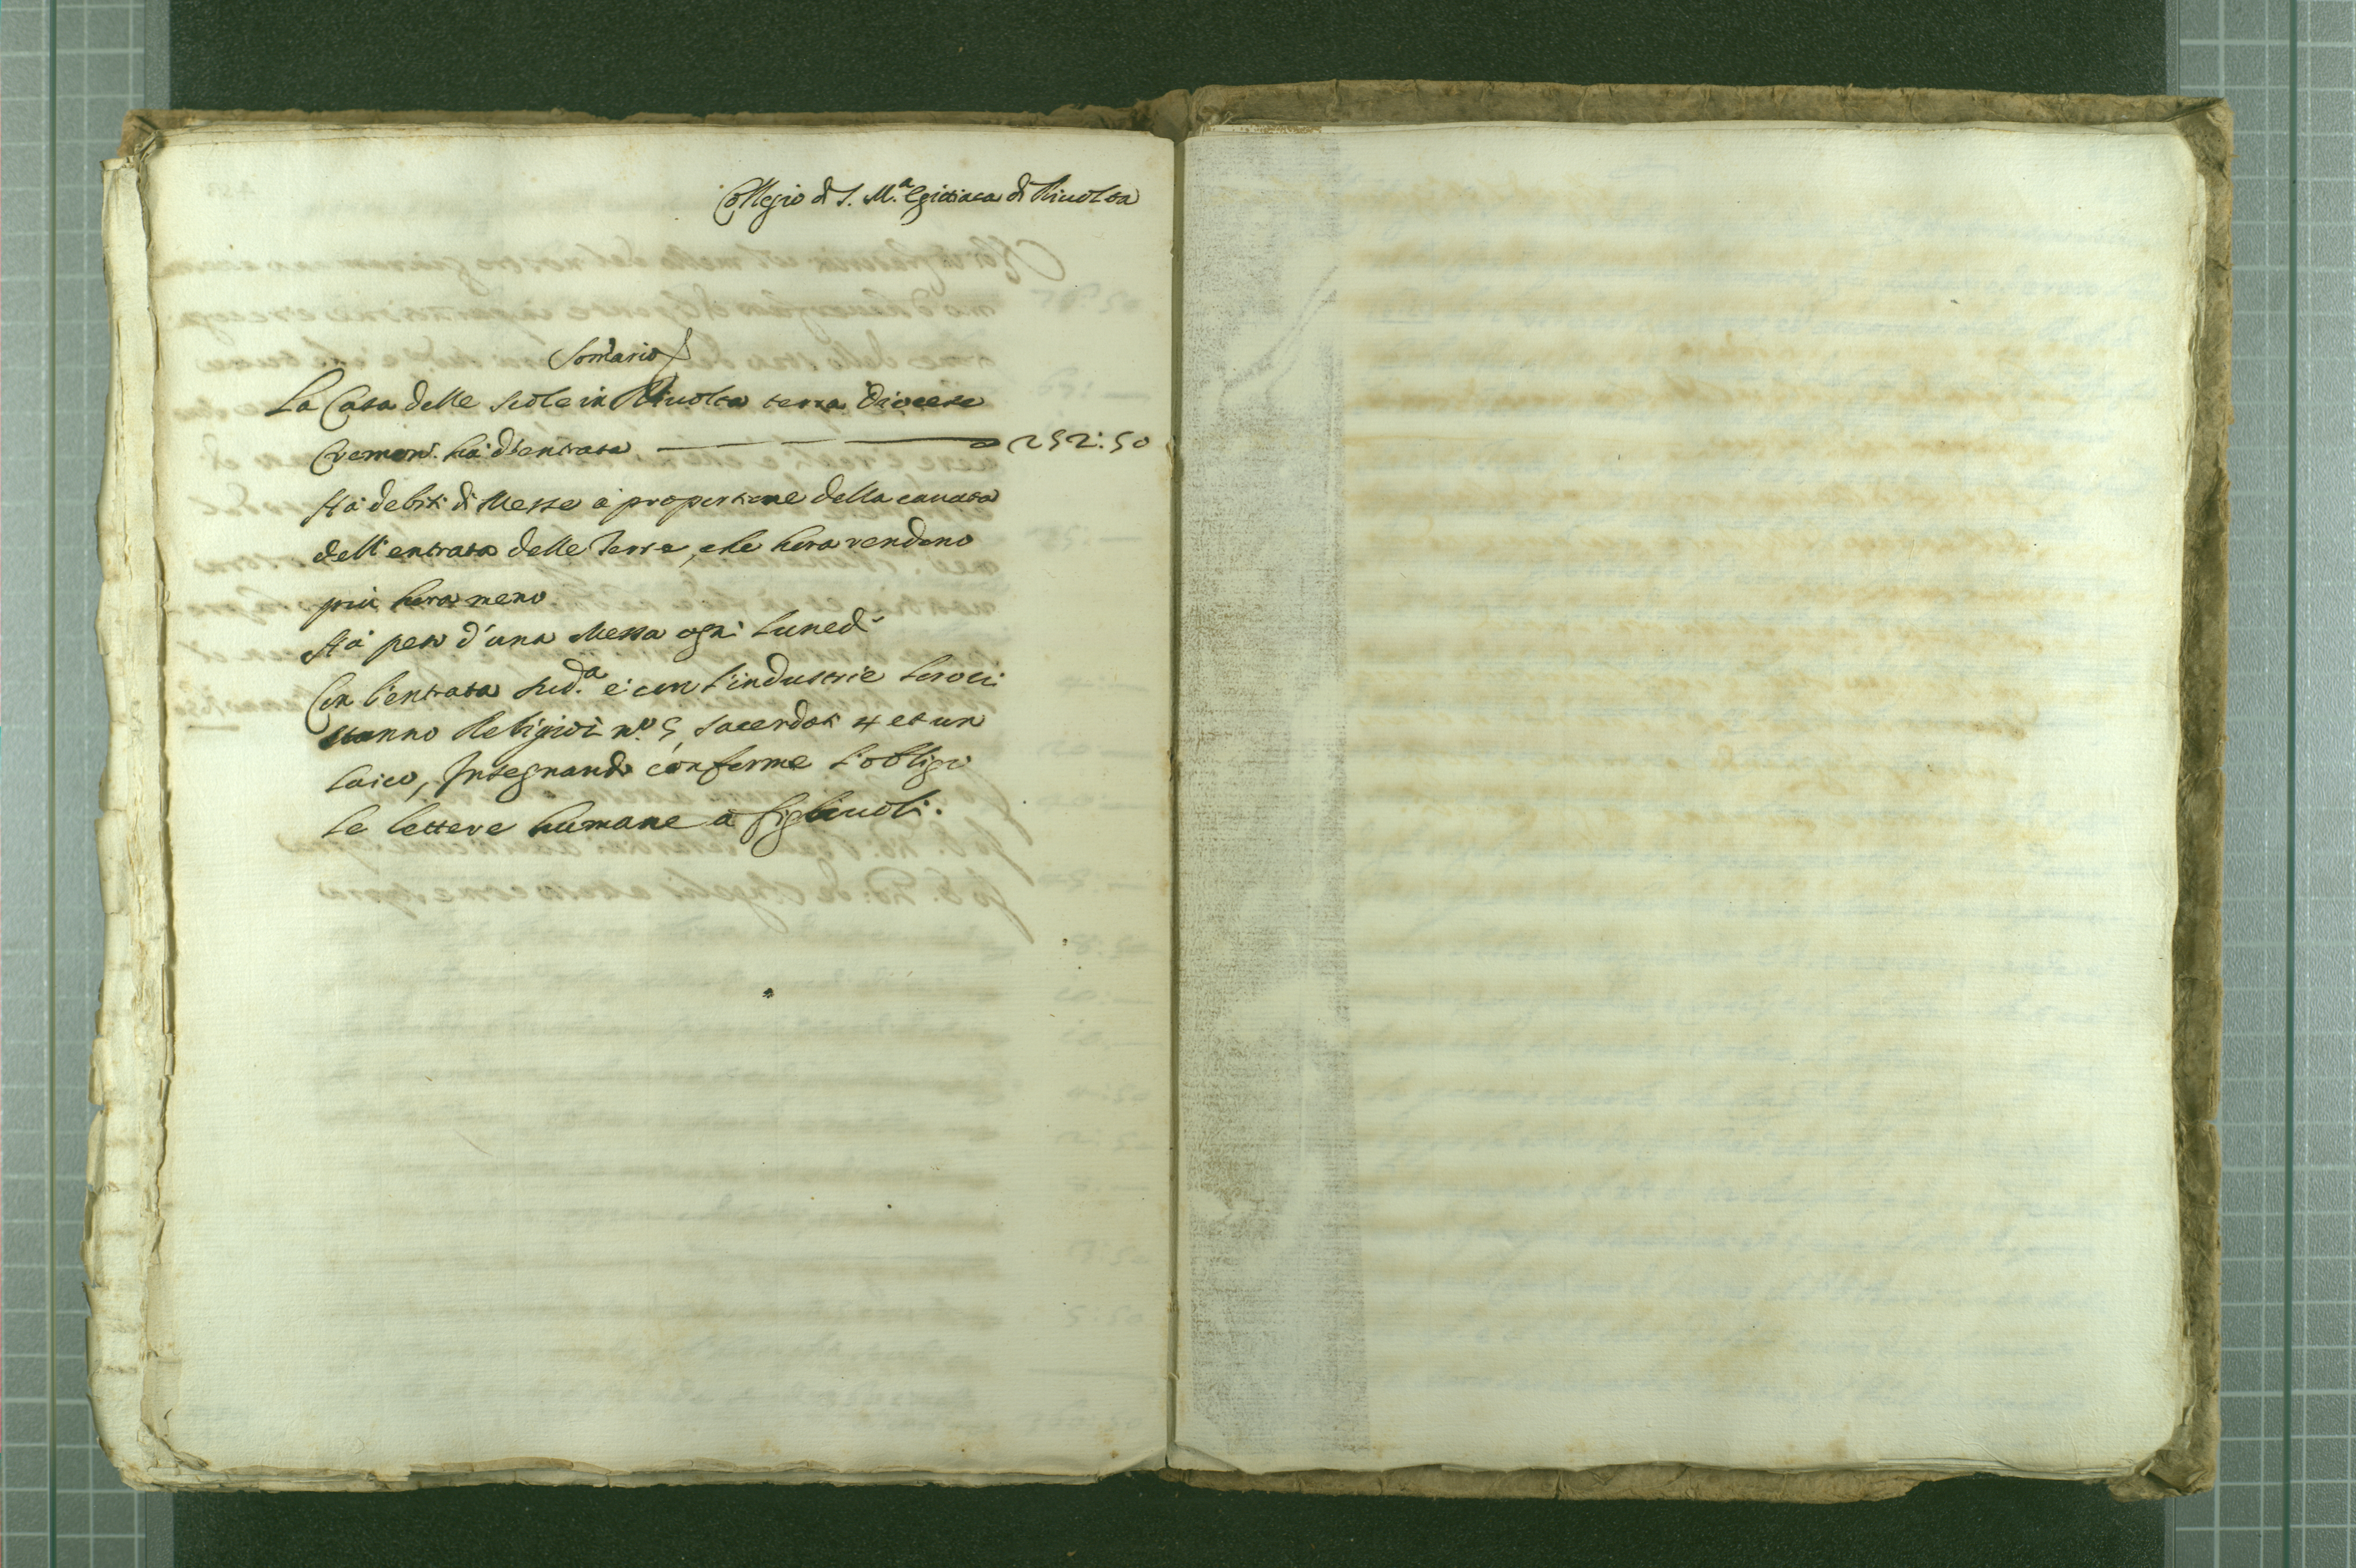 Collegio di S. M.ª Egittiaca di Riuolta
Som̃ario
La Casa delle scole in Riuolta terra Diocese
Cremon. hà d'entrata 252:50
Hà debiti di Messe à proportione della cauata
dell'entrata delle Terre, che hora rendono
più hora meno
Hà peso d'una Messa ogni lunedì
Con l'entrata sud.ª e con l'industrie loro ci
stanno Religiosi n.º 5, sacerdoti 4 et un
laico, Insegnando conforme l'obligo
le lettere humane a figliuoli.